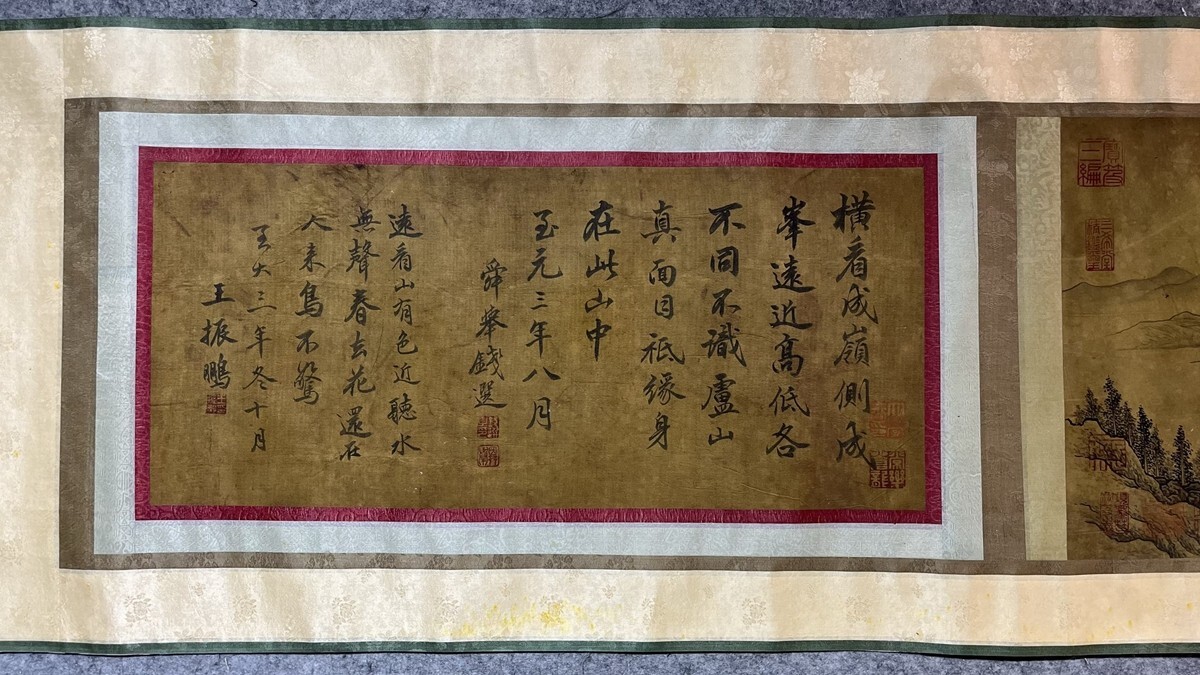 寶笈三編
三希堂精鑑璽
橫看成嶺側成
峯遠近高低各
不同不識盧山
真面目祗緣身
在此山中
至元三年八月
舜舉錢選
遠看山有色近聽水
無聲春去花還在
人来鳥不驚
至大三年冬十月
王振鵬